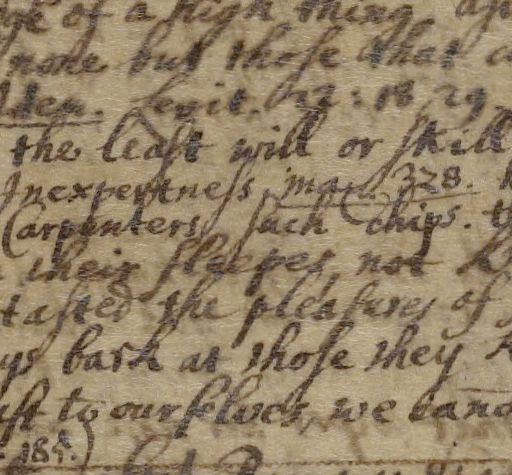 of a high thing
none but those that
Idem. Levit. 22: 18. 29
the least will or skill
Inexpertness, mar. 328.
Carpenters, such chips.
their sleepes, not
tasted the pleasures of
bark at those they
to ourselves, we cano
185.)